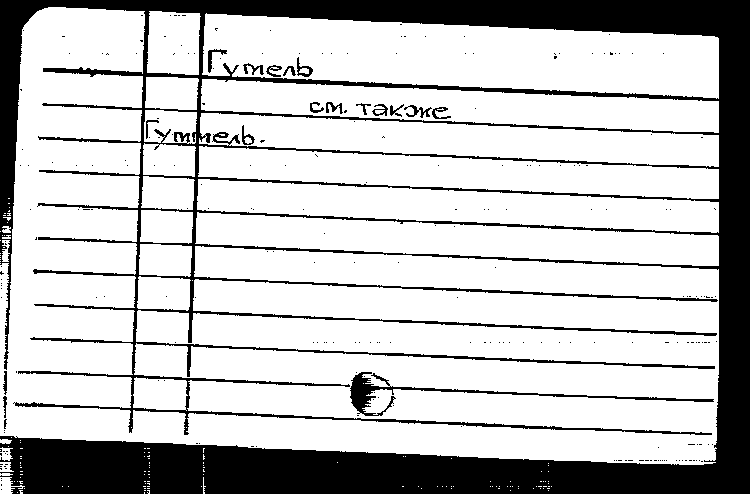 Гутель
см. также
Гуттель.